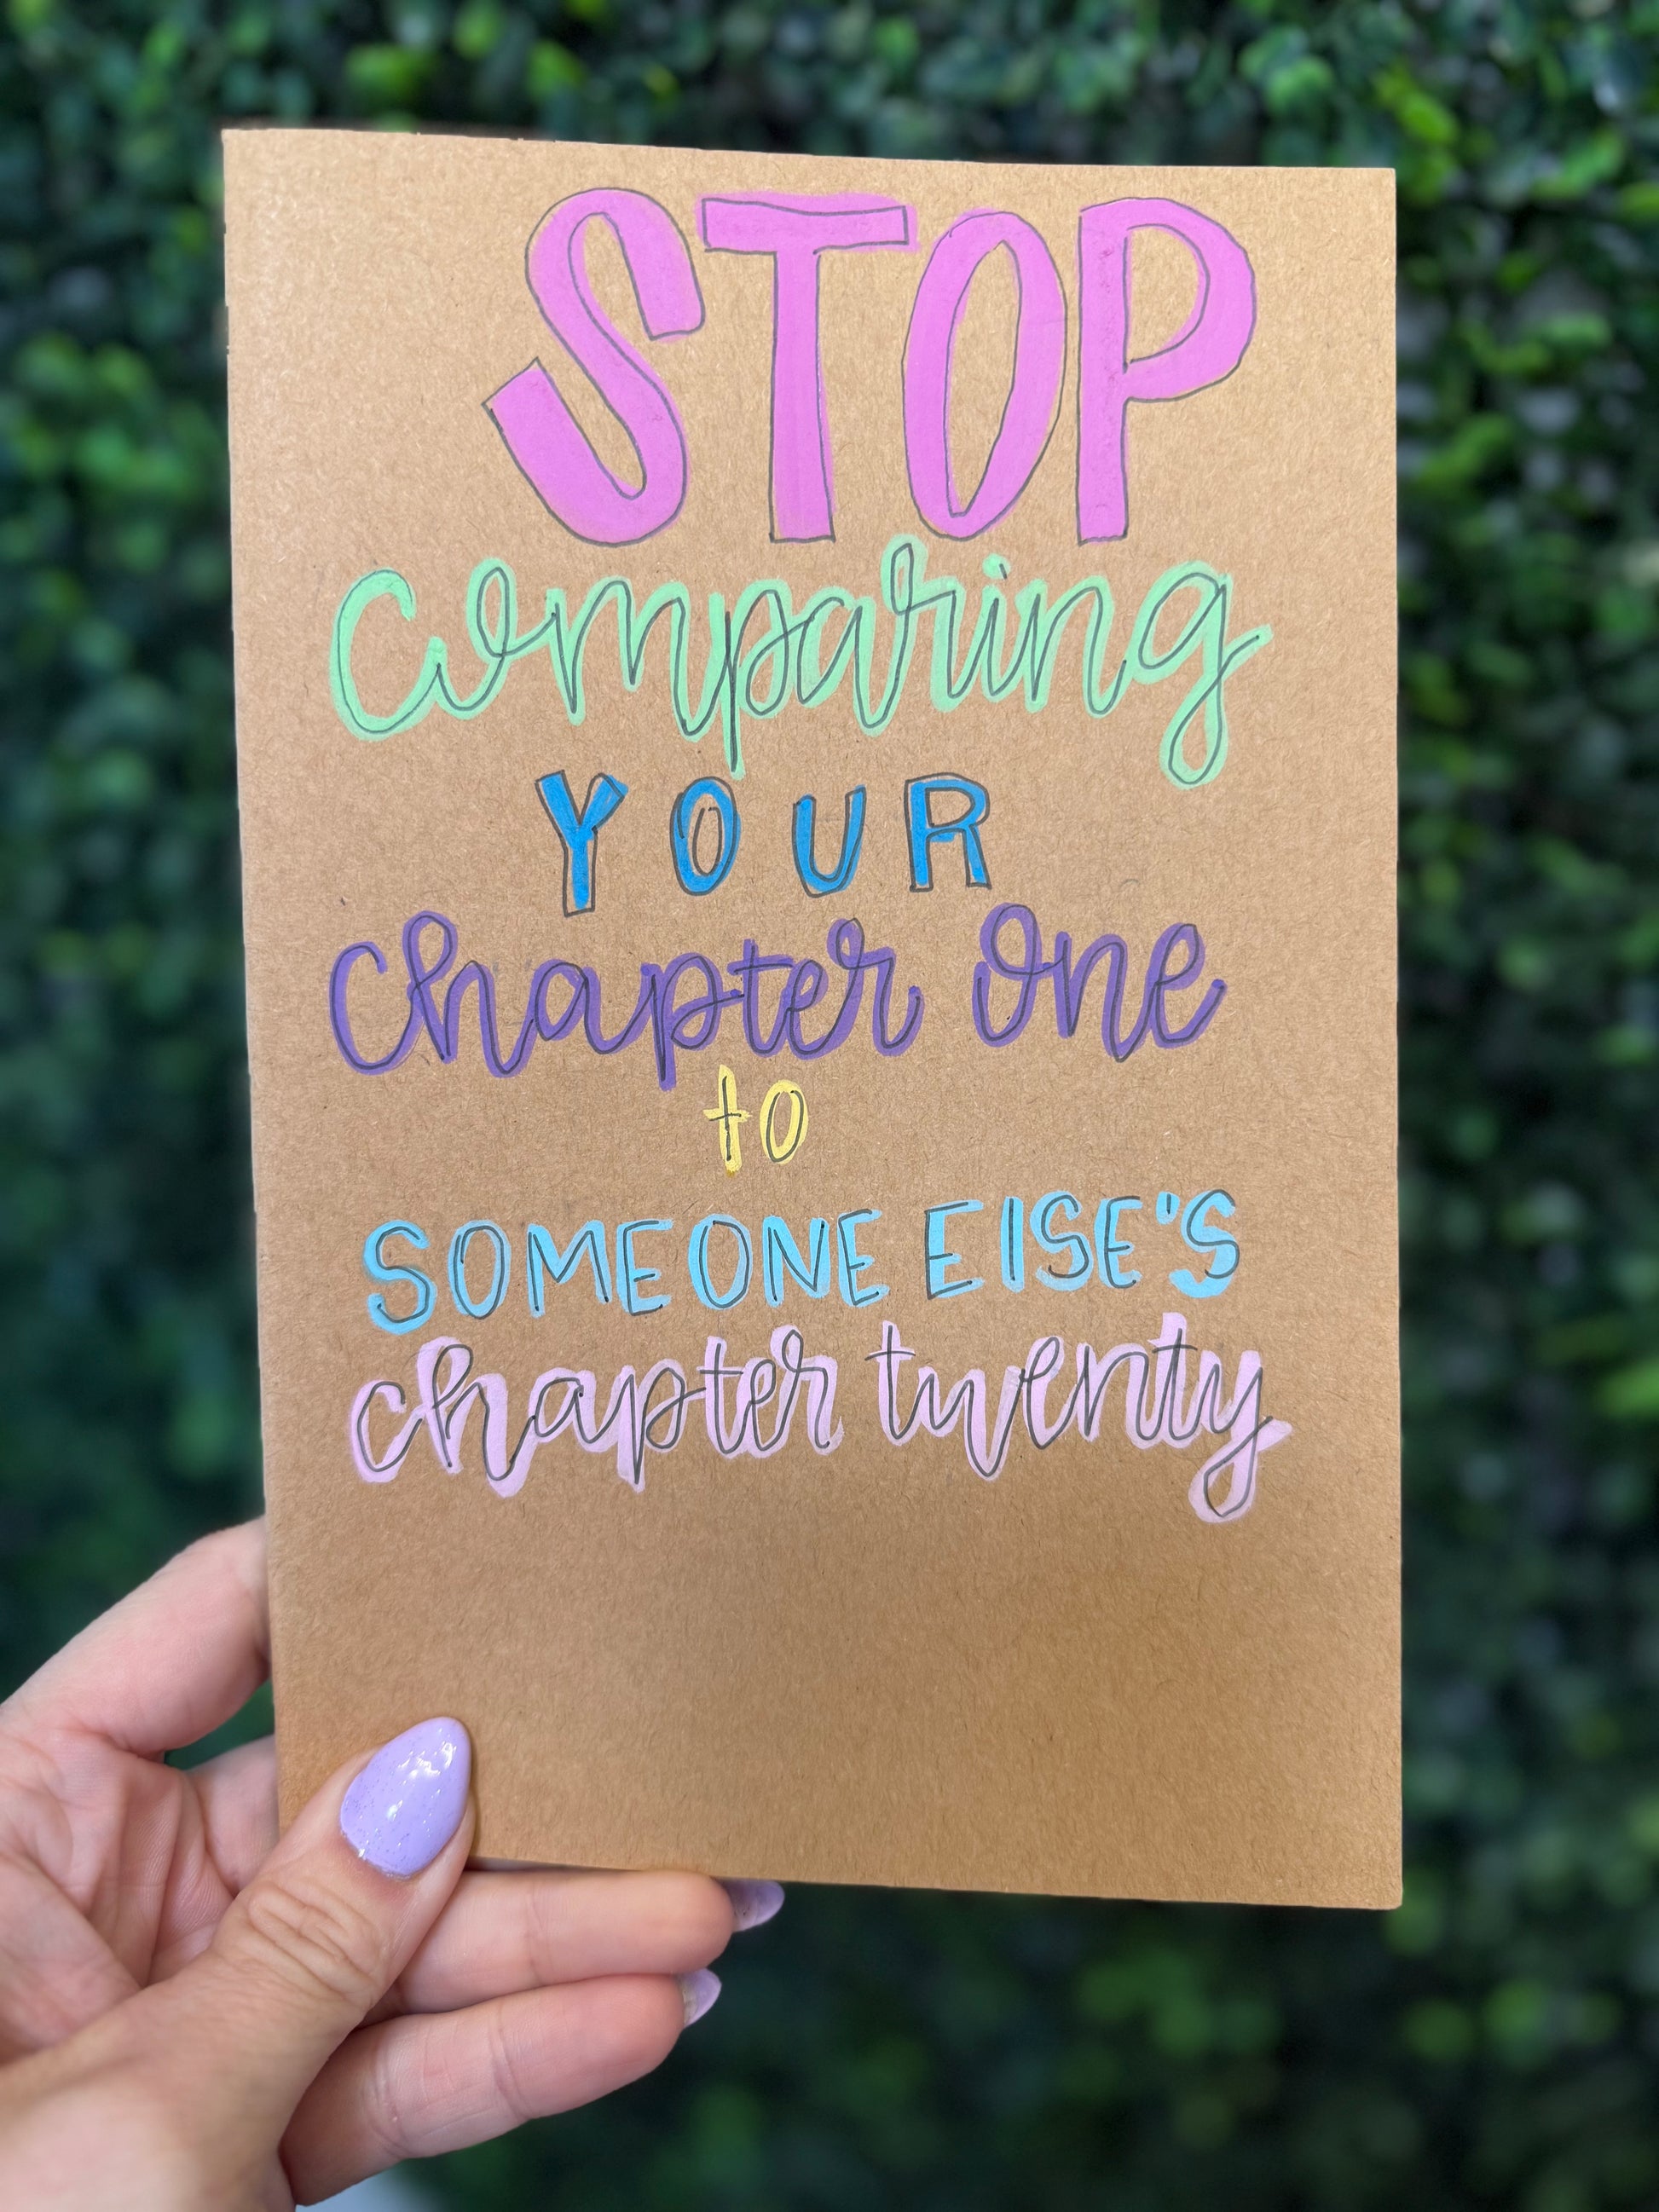 STOP
comparing
YOUR
chapter one
to
SOMEONE ElSE'S
chapter twenty